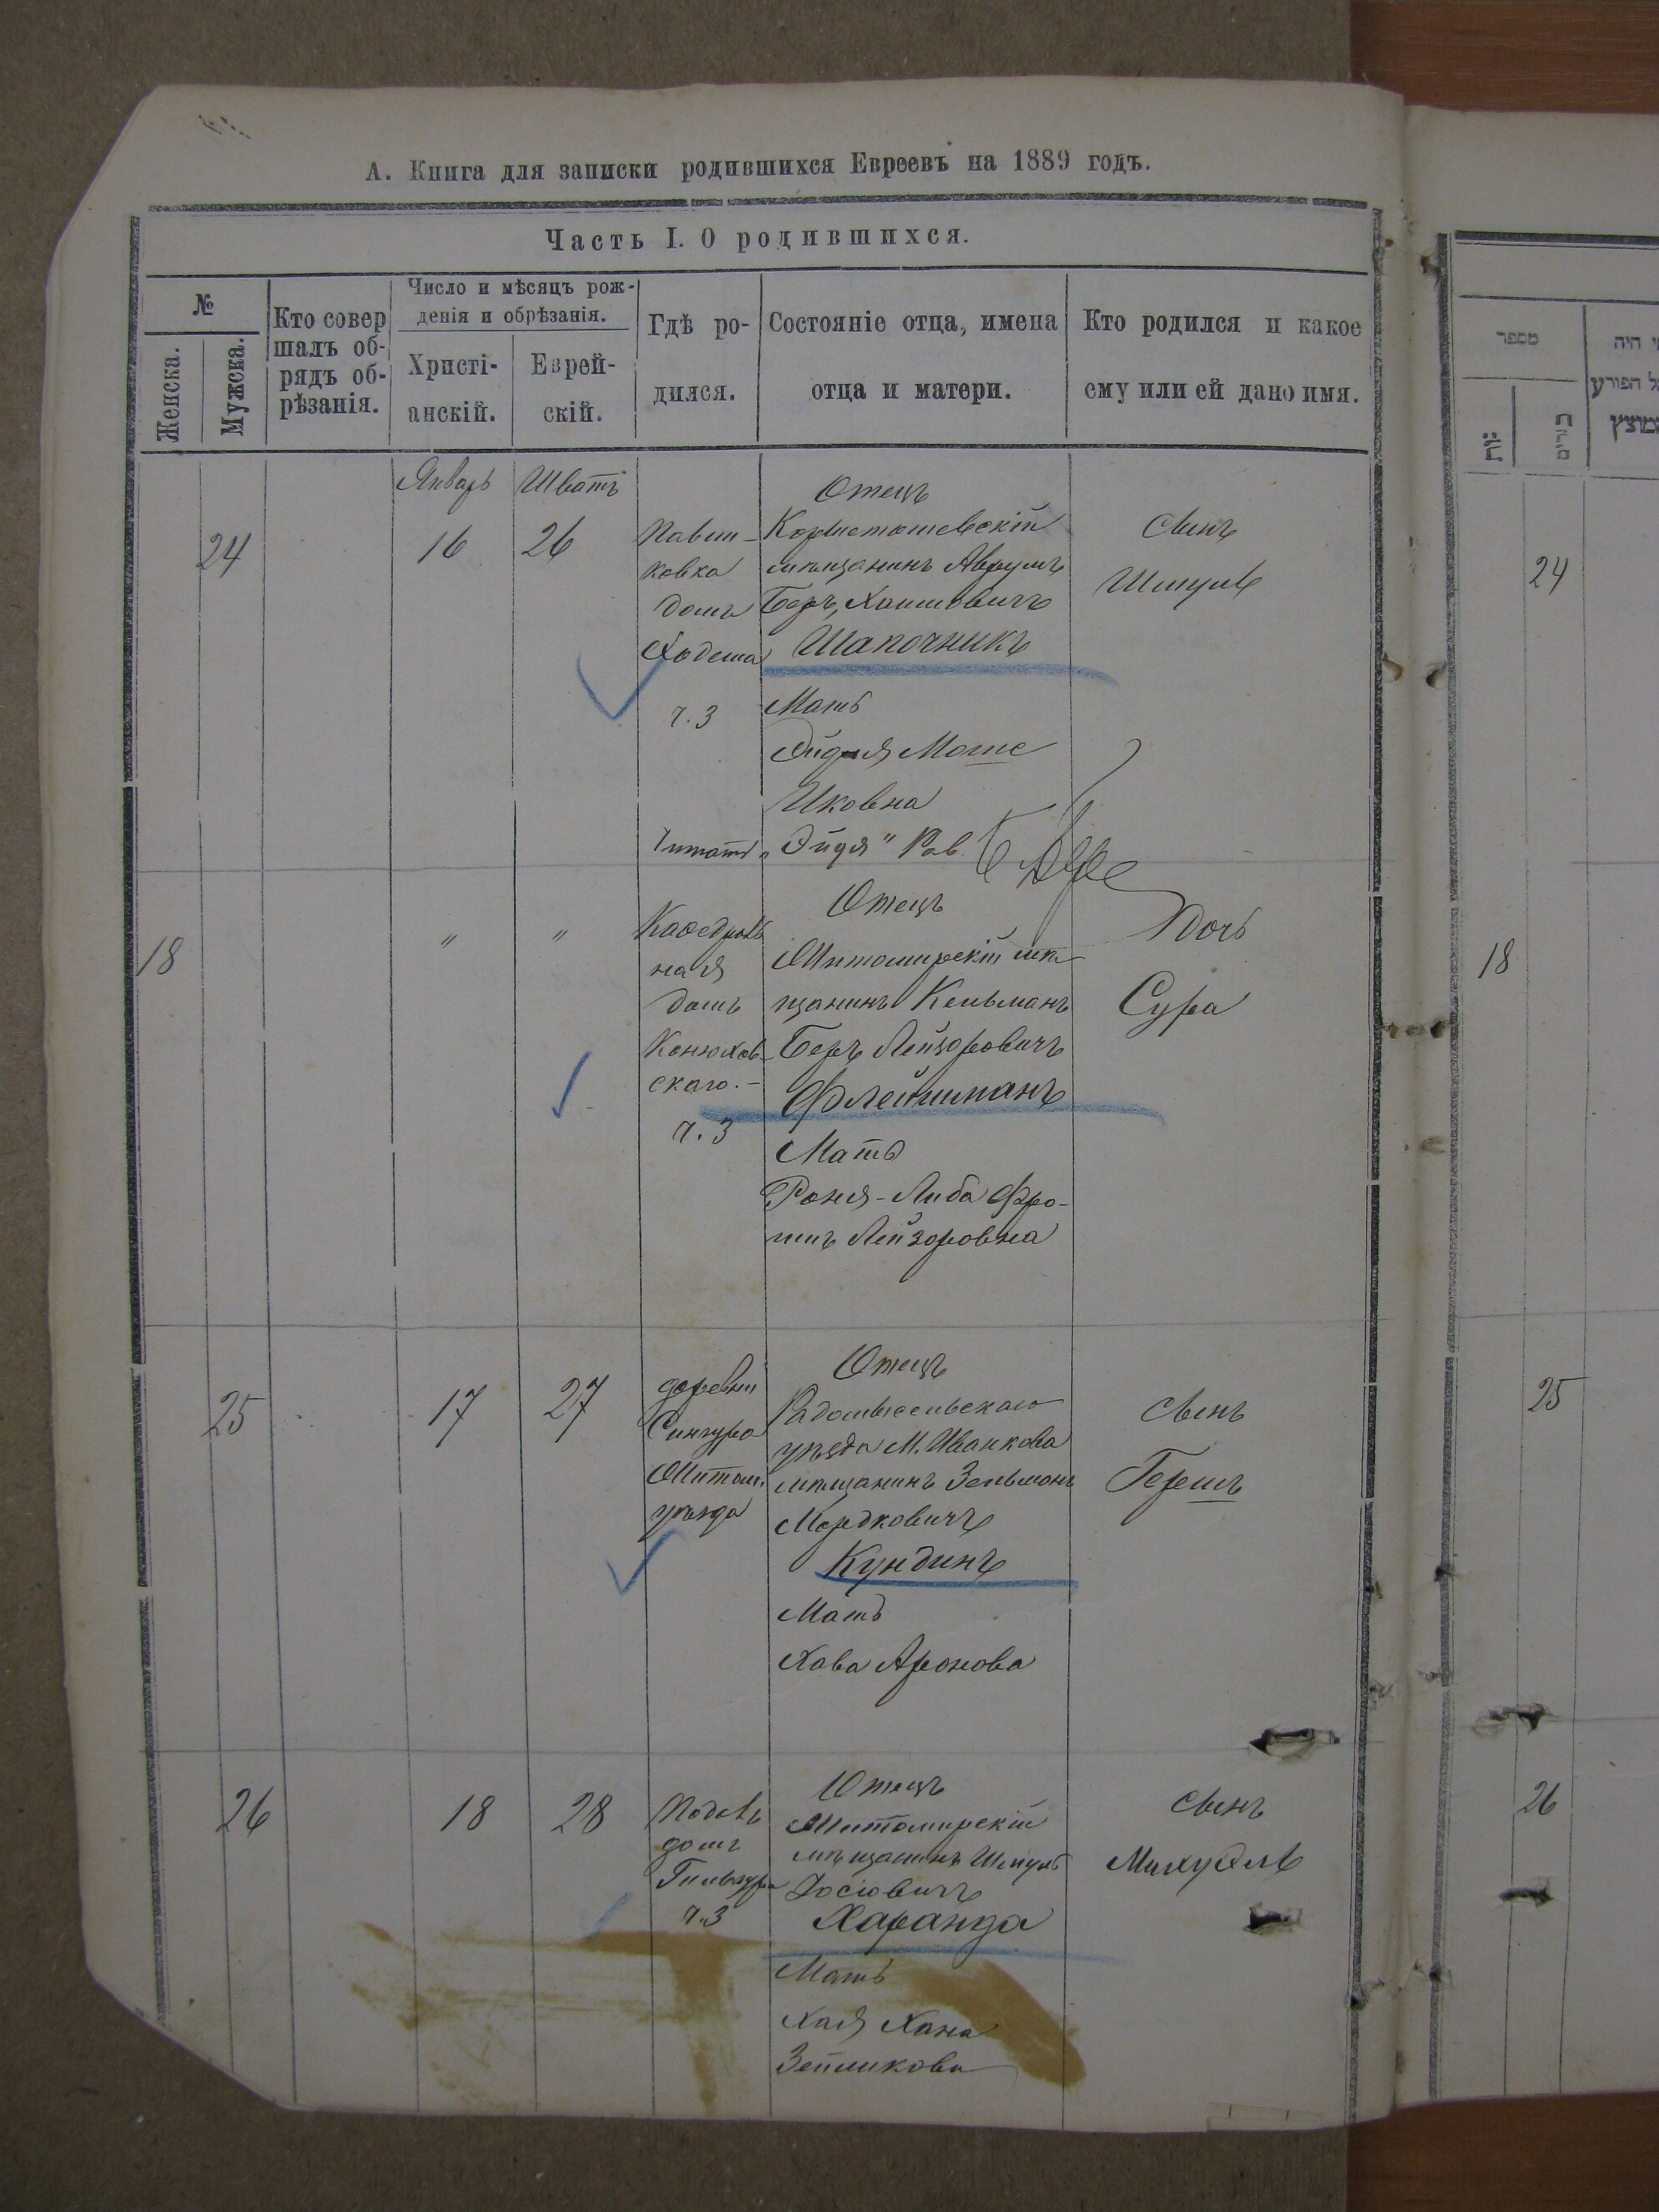 А. Книга для записки родившихся Евреевъ на 1889 годъ.
Часть I. О родившихся.
№
Женска.
Мужска.
Кто совер
шалъ об-
рядъ об-
рѣзанія.
Число и мѣсяцъ рож-
денія и обрѣзанія.
Христі-
анскій.
Еврей-
скій.
Гдѣ ро-
дился.
Состояніе отца, имена
отца и матери.
Кто родился и какое
ему или ей дано имя.
Январь Шватъ
24
16
26
Павли-
ковка
домъ
Ходоша
ч. 3
Отецъ
Коростышевскій
мѣщанинъ Аврумъ
Беръ Хаимовичъ
Шапочникъ
Мать
Эйдля Моше
Иковна
Читать „Эйдя" Рав.
Сынъ
Шмуль
18
"
"
Каѳедраль
ная
домъ
Конюхов-
скаго.-
ч. 3
Отецъ
Житомирскій мѣ-
щанинъ Кельманъ
Беръ Лейзоровичъ
Флейшманъ
Мать
Роня-Либа Фро-
имъ Лейзоровна
Дочь
Сура
25
17
27
деревни
Сингура
Житом.
уѣзда
Отецъ
Радомысельскаго
уѣзда М. Иванкова
мѣщанинъ Зельманъ
Мордковичъ
Кундинъ
Мать
Хава Аронова
Сынъ
Гершъ
26
18
28
домъ
ч. 3
Отецъ
Житомирскій
мѣщанинъ Шмуль
Іосіовичъ
Харанда
Мать
Хая Хана
Зейликова
Сынъ
Михуэль
מספר
24
18
25
26